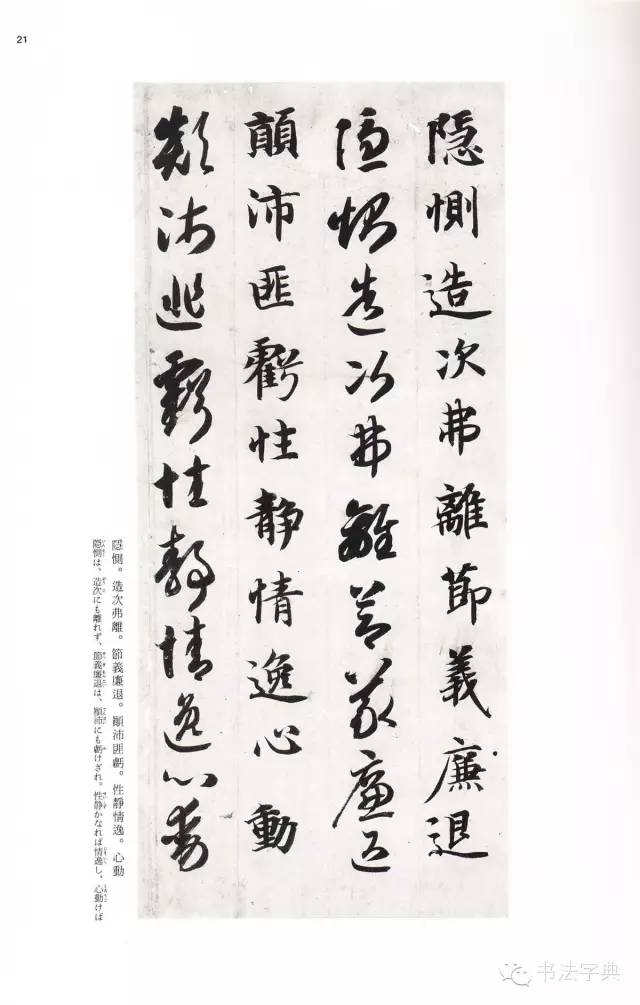 21
隱惻造次弗離節義廉退
隱惻造次弗離節義廉退
顛沛匪虧性静情逸心動
顛沛匪虧性静情逸心動
隱惻。造次弗離。節義廉退。顚沛匪虧。性靜情逸。心動
隱惻は、造次にも離れず、節義廉退は、顚沛にも虧けざれ。性静かなれば情逸し、心動けば
书法字典